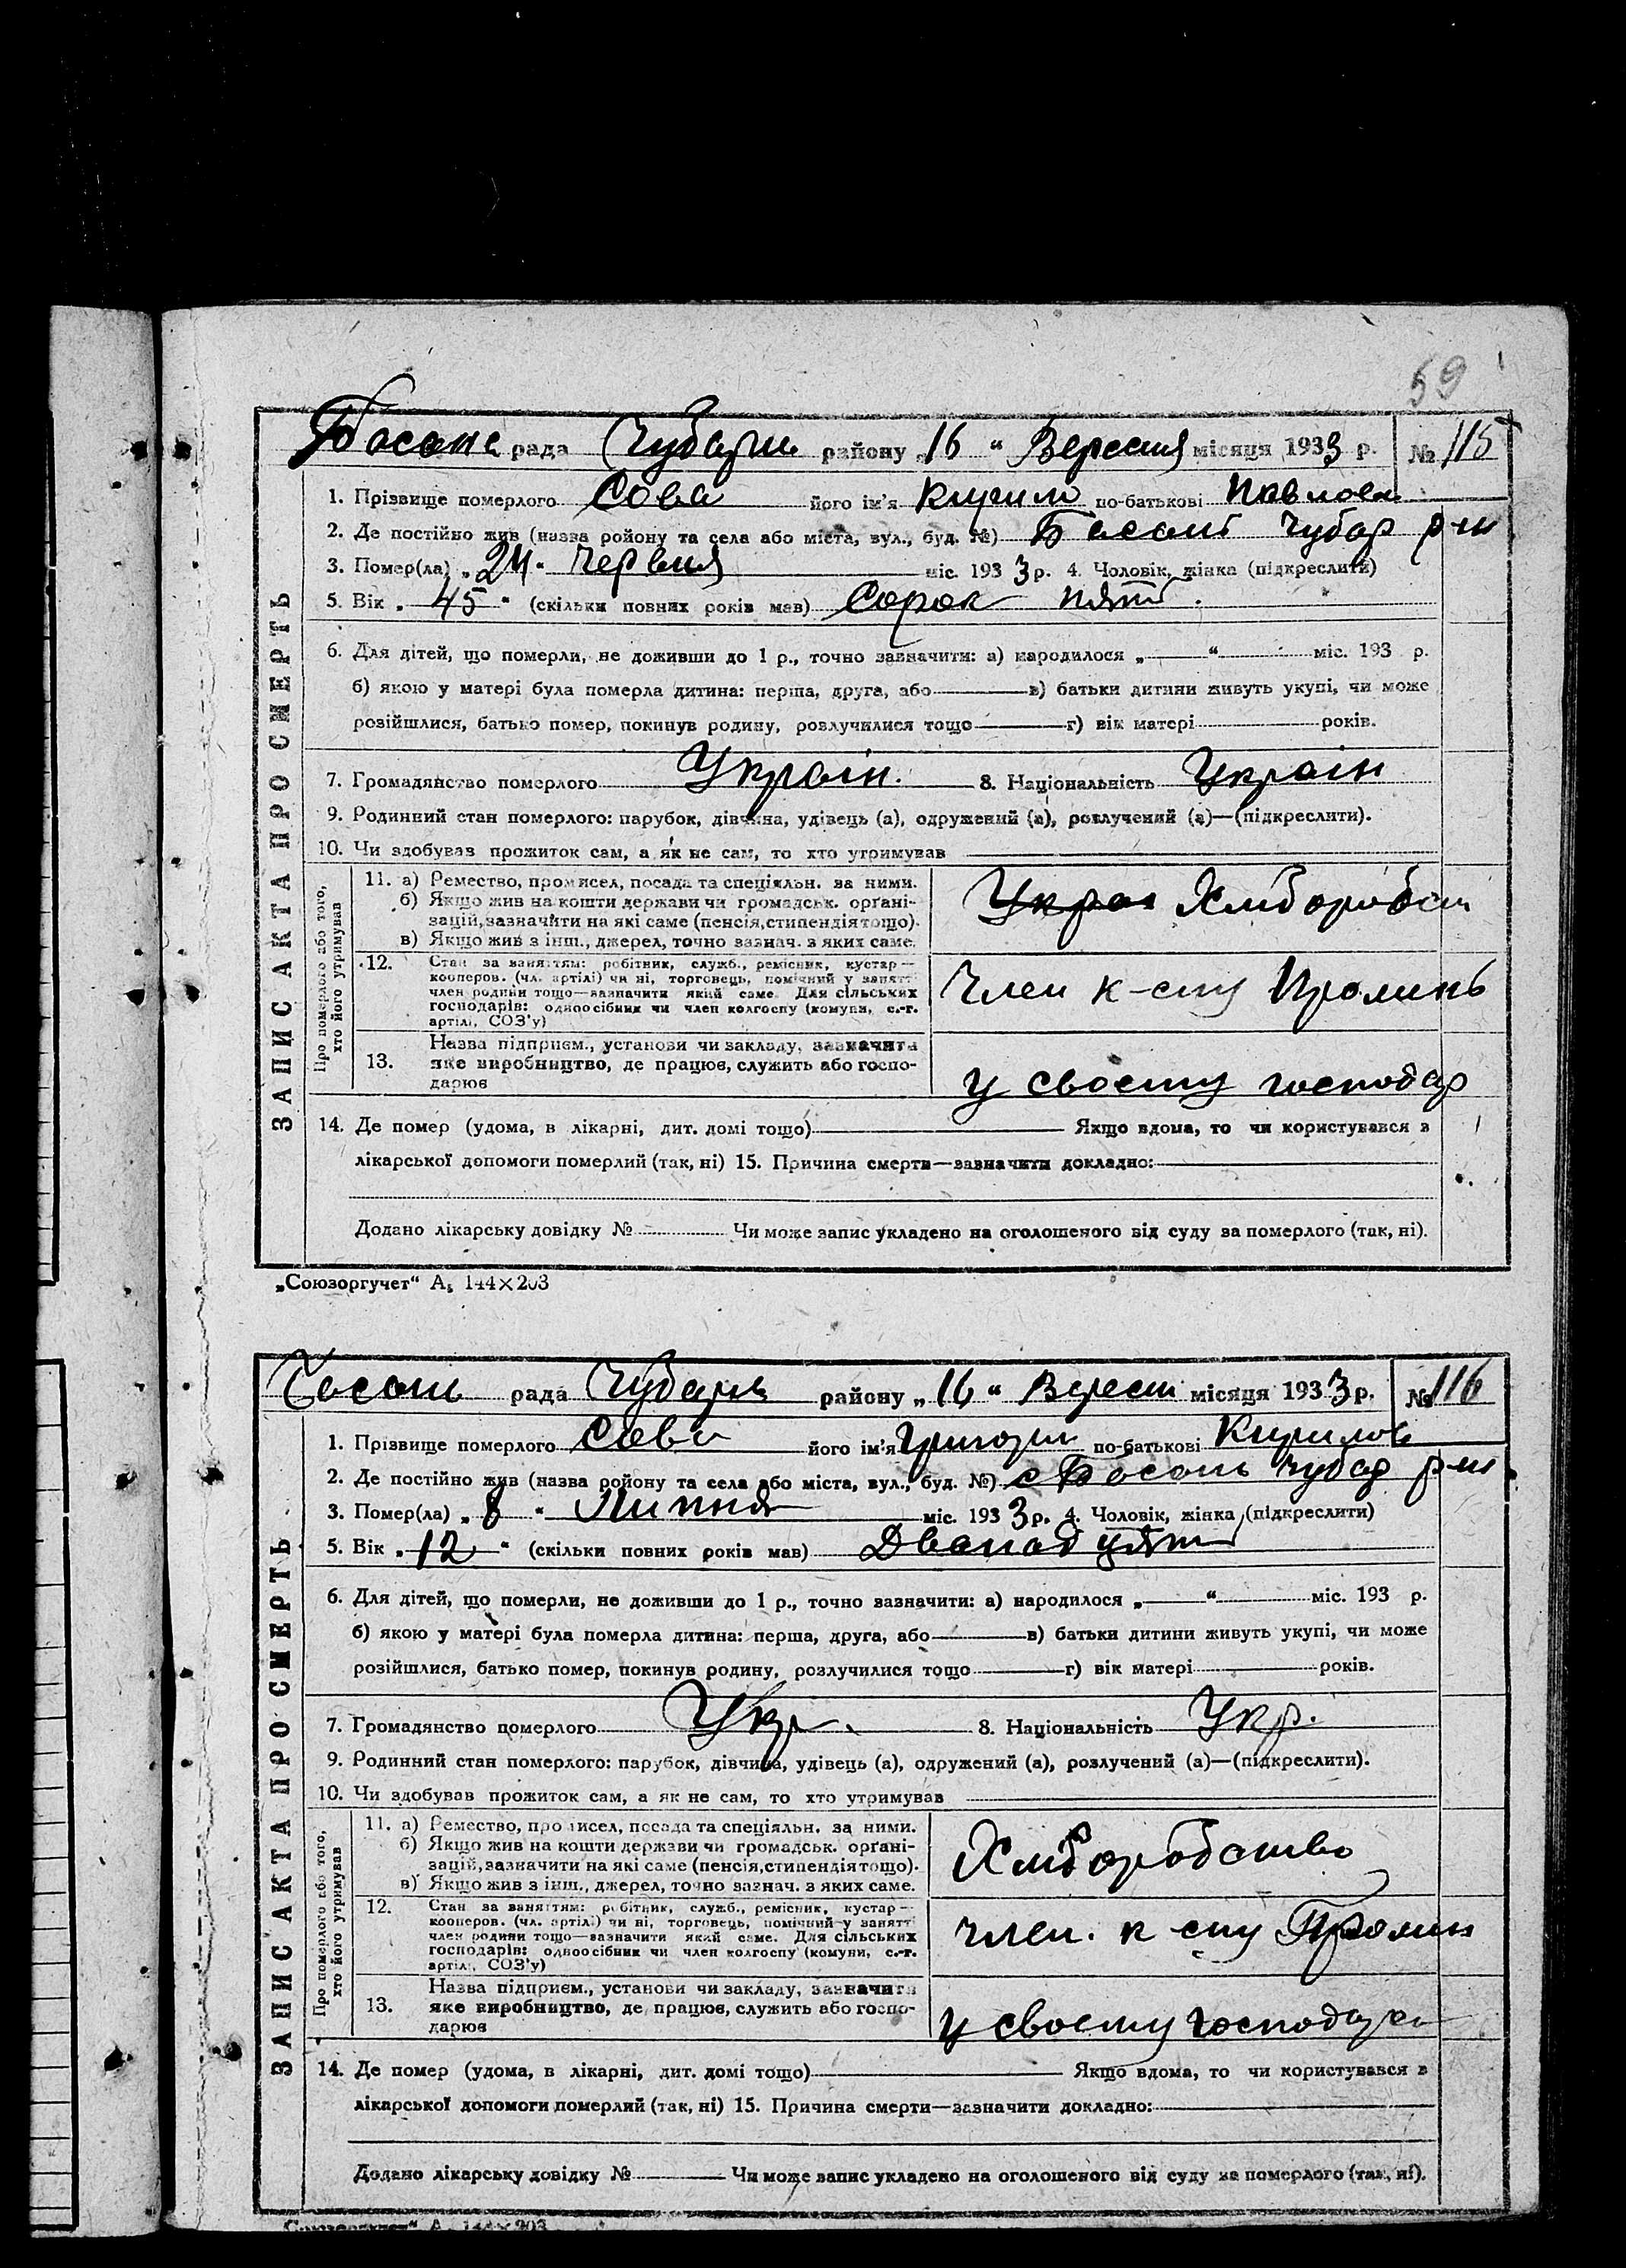 59
Басанс рада Чубарів району „16 “ Вересня місяця 1933 р. № 115
1. Прізвище померлого Сова його ім'я Кирило по-батькові Павлов
2. Де постійно жив (назва ройону та села або міста, вул., буд. №) Басань Чубар р-н
3. Помер(ла) „24“ Червня міс. 1933 р. 4. Чоловік, жінка (підкреслити)
5. Вік „ 45 “ (скільки повних років мав) Сорок пять.
6. Для дітей, що померли, не доживши до 1 р., точно зазначити: а) народилося „ “ міс. 193 р.
б) якою у матері була померла дитина: перша, друга, або в) батьки дитини живуть укупі, чи може
розійшлися, батько помер, покинув родину, розлучилися тощо г) вік матері років.
7. Громадянство померлого Україн. 8. Національність Україн
9. Родинний стан померлого: парубок, дівчина, удівець (а), одружений (а), розлучений (а)—(підкреслити).
10. Чи здобував прожиток сам, а як не сам, то хто утримував
ЗАПИС АКТА ПРО СМЕРТЬ
Про померлого або того,
хто його утримував
11. а) Ремество, промисел, посада та спеціяльн. за ними.
б) Якщо жив на кошти держави чи громадськ. органі-
зацій, зазначити на які саме (пенсія, стипендія тощо).
в) Якщо жив з інш., джерел, точно зазнач. з яких саме.
Укра Хліборобст
12. Стан за заняттям: робітник, служб., ремісник, кустар—
кооперов. (чл. артілі) чи ні, торговець, помічний у занятті
член родини тощо—зазначити який саме. Для сільських
господарів: одноосібник чи член колгоспу (комуни, с.-г.
артілі, СОЗ'у)
Член к-спу Проминь
13. Назва підприєм., установи чи закладу, зазначити
яке виробництво, де працює, служить або госпо-
дарює
у своєму господар
14. Де помер (удома, в лікарні, дит. домі тощо) Якщо вдома, то чи користувався з
лікарської допомоги померлий (так, ні) 15. Причина смерти—зазначити докладно:
Додано лікарську довідку № Чи може запис укладено на оголошеного від суду за померлого (так, ні).
„Союзоргучет“ А, 144×203
Басань рада Чубарів району „16“ Вересня місяця 1933 р. № 116
1. Прізвище померлого Сова його ім'я Григорій по-батькові Кирилов
2. Де постійно жив (назва ройону та села або міста, вул., буд. №) с Басань Чубар р-н
3. Помер(ла) „ 8 “ Липня міс. 1933 р. 4. Чоловік, жінка (підкреслити)
5. Вік „ 12 “ (скільки повних років мав) Дванадцять
6. Для дітей, що померли, не доживши до 1 р., точно зазначити: а) народилося „ “ міс. 193 р.
б) якою у матері була померла дитина: перша, друга, або в) батьки дитини живуть укупі, чи може
розійшлися, батько помер, покинув родину, розлучилися тощо г) вік матері років.
7. Громадянство померлого Укр. 8. Національність Укр.
9. Родинний стан померлого: парубок, дівчина, удівець (а), одружений (а), розлучений (а)—(підкреслити).
10. Чи здобував прожиток сам, а як не сам, то хто утримував
ЗАПИС АКТА ПРО СМЕРТЬ
Про померлого або того,
хто його утримував
11. а) Ремество, промисел, посада та спеціяльн. за ними.
б) Якщо жив на кошти держави чи громадськ. органі-
зацій, зазначити на які саме (пенсія, стипендія тощо).
в) Якщо жив з інш., джерел, точно зазнач. з яких саме.
Хліборобство
12. Стан за заняттям: робітник, служб., ремісник, кустар—
кооперов. (чл. артілі) чи ні, торговець, помічний у занятті
член родини тощо—зазначити який саме. Для сільських
господарів: одноосібник чи член колгоспу (комуни, с.-г.
артілі, СОЗ'у)
член. к спу Промин
13. Назва підприєм., установи чи закладу, зазначити
яке виробництво, де працює, служить або госпо-
дарює
у своєму господар
14. Де помер (удома, в лікарні, дит. домі тощо) Якщо вдома, то чи користувався з
лікарської допомоги померлий (так, ні) 15. Причина смерти—зазначити докладно:
Додано лікарську довідку № Чи може запис укладено на оголошеного від суду за померлого (так, ні).
„Союзоргучет“ А, 144×203